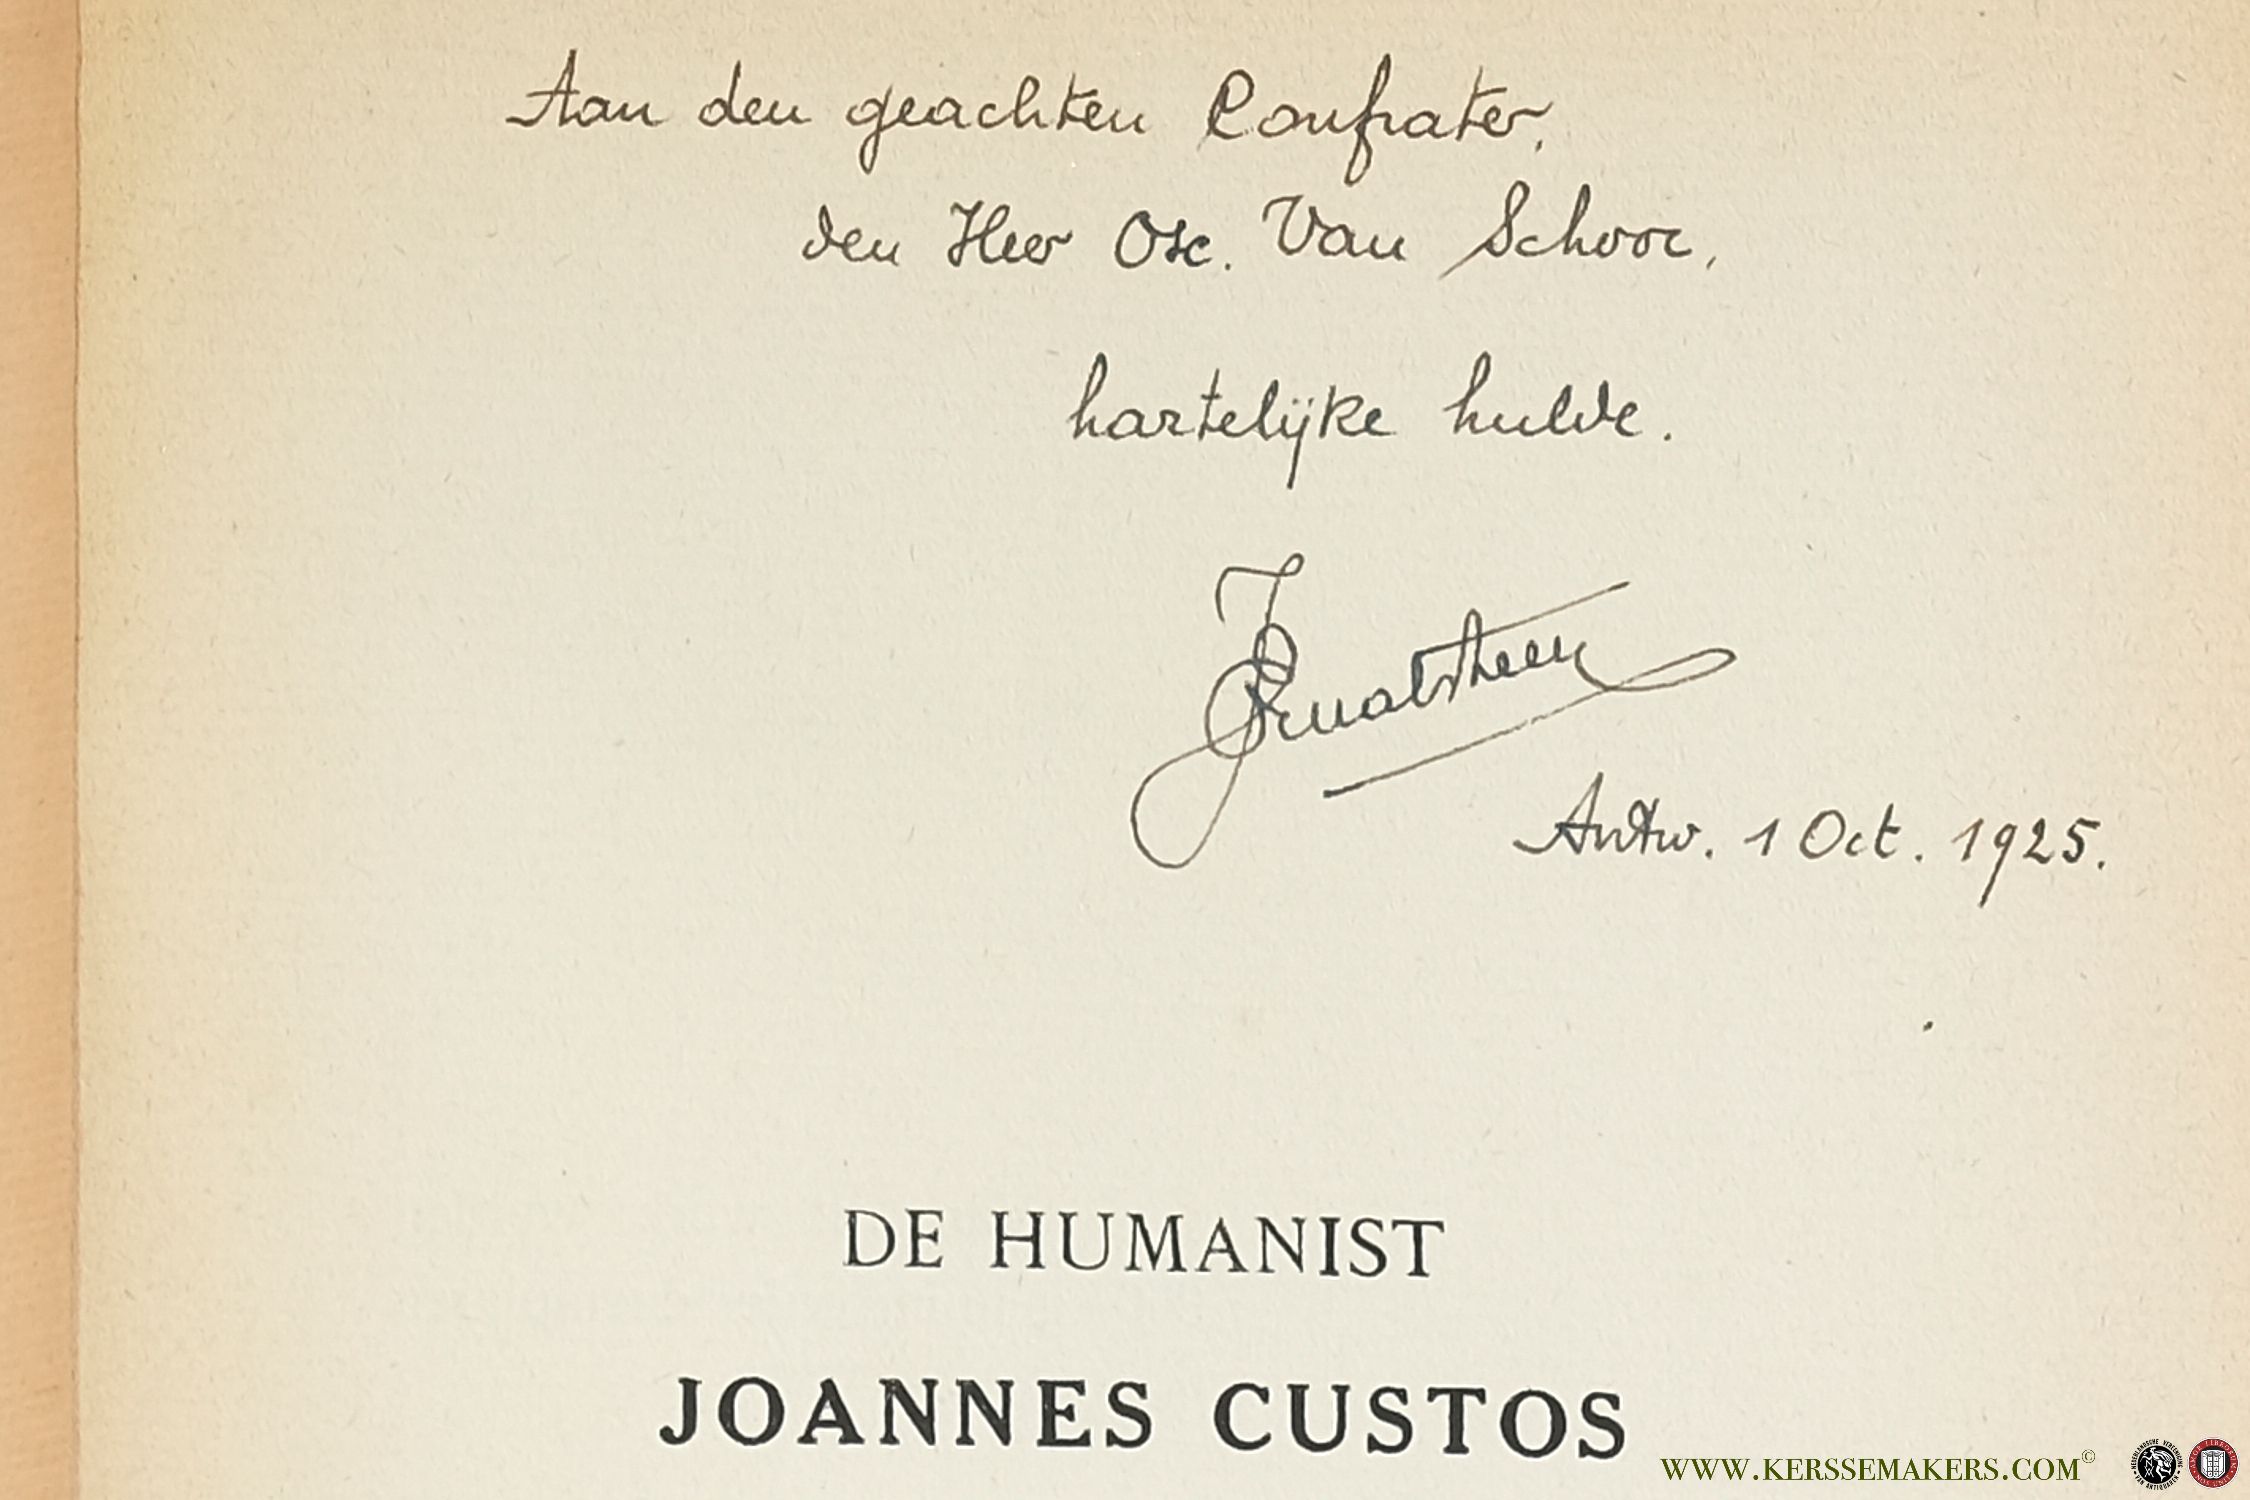 Aan den geachten Confrater,
den Heer Osc. Van Schoor,
hartelijke hulde.
Antw. 1 Oct. 1925.
DE HUMANIST
JOANNES CUSTOS
WWW.KERSSEMAKERS.COM©